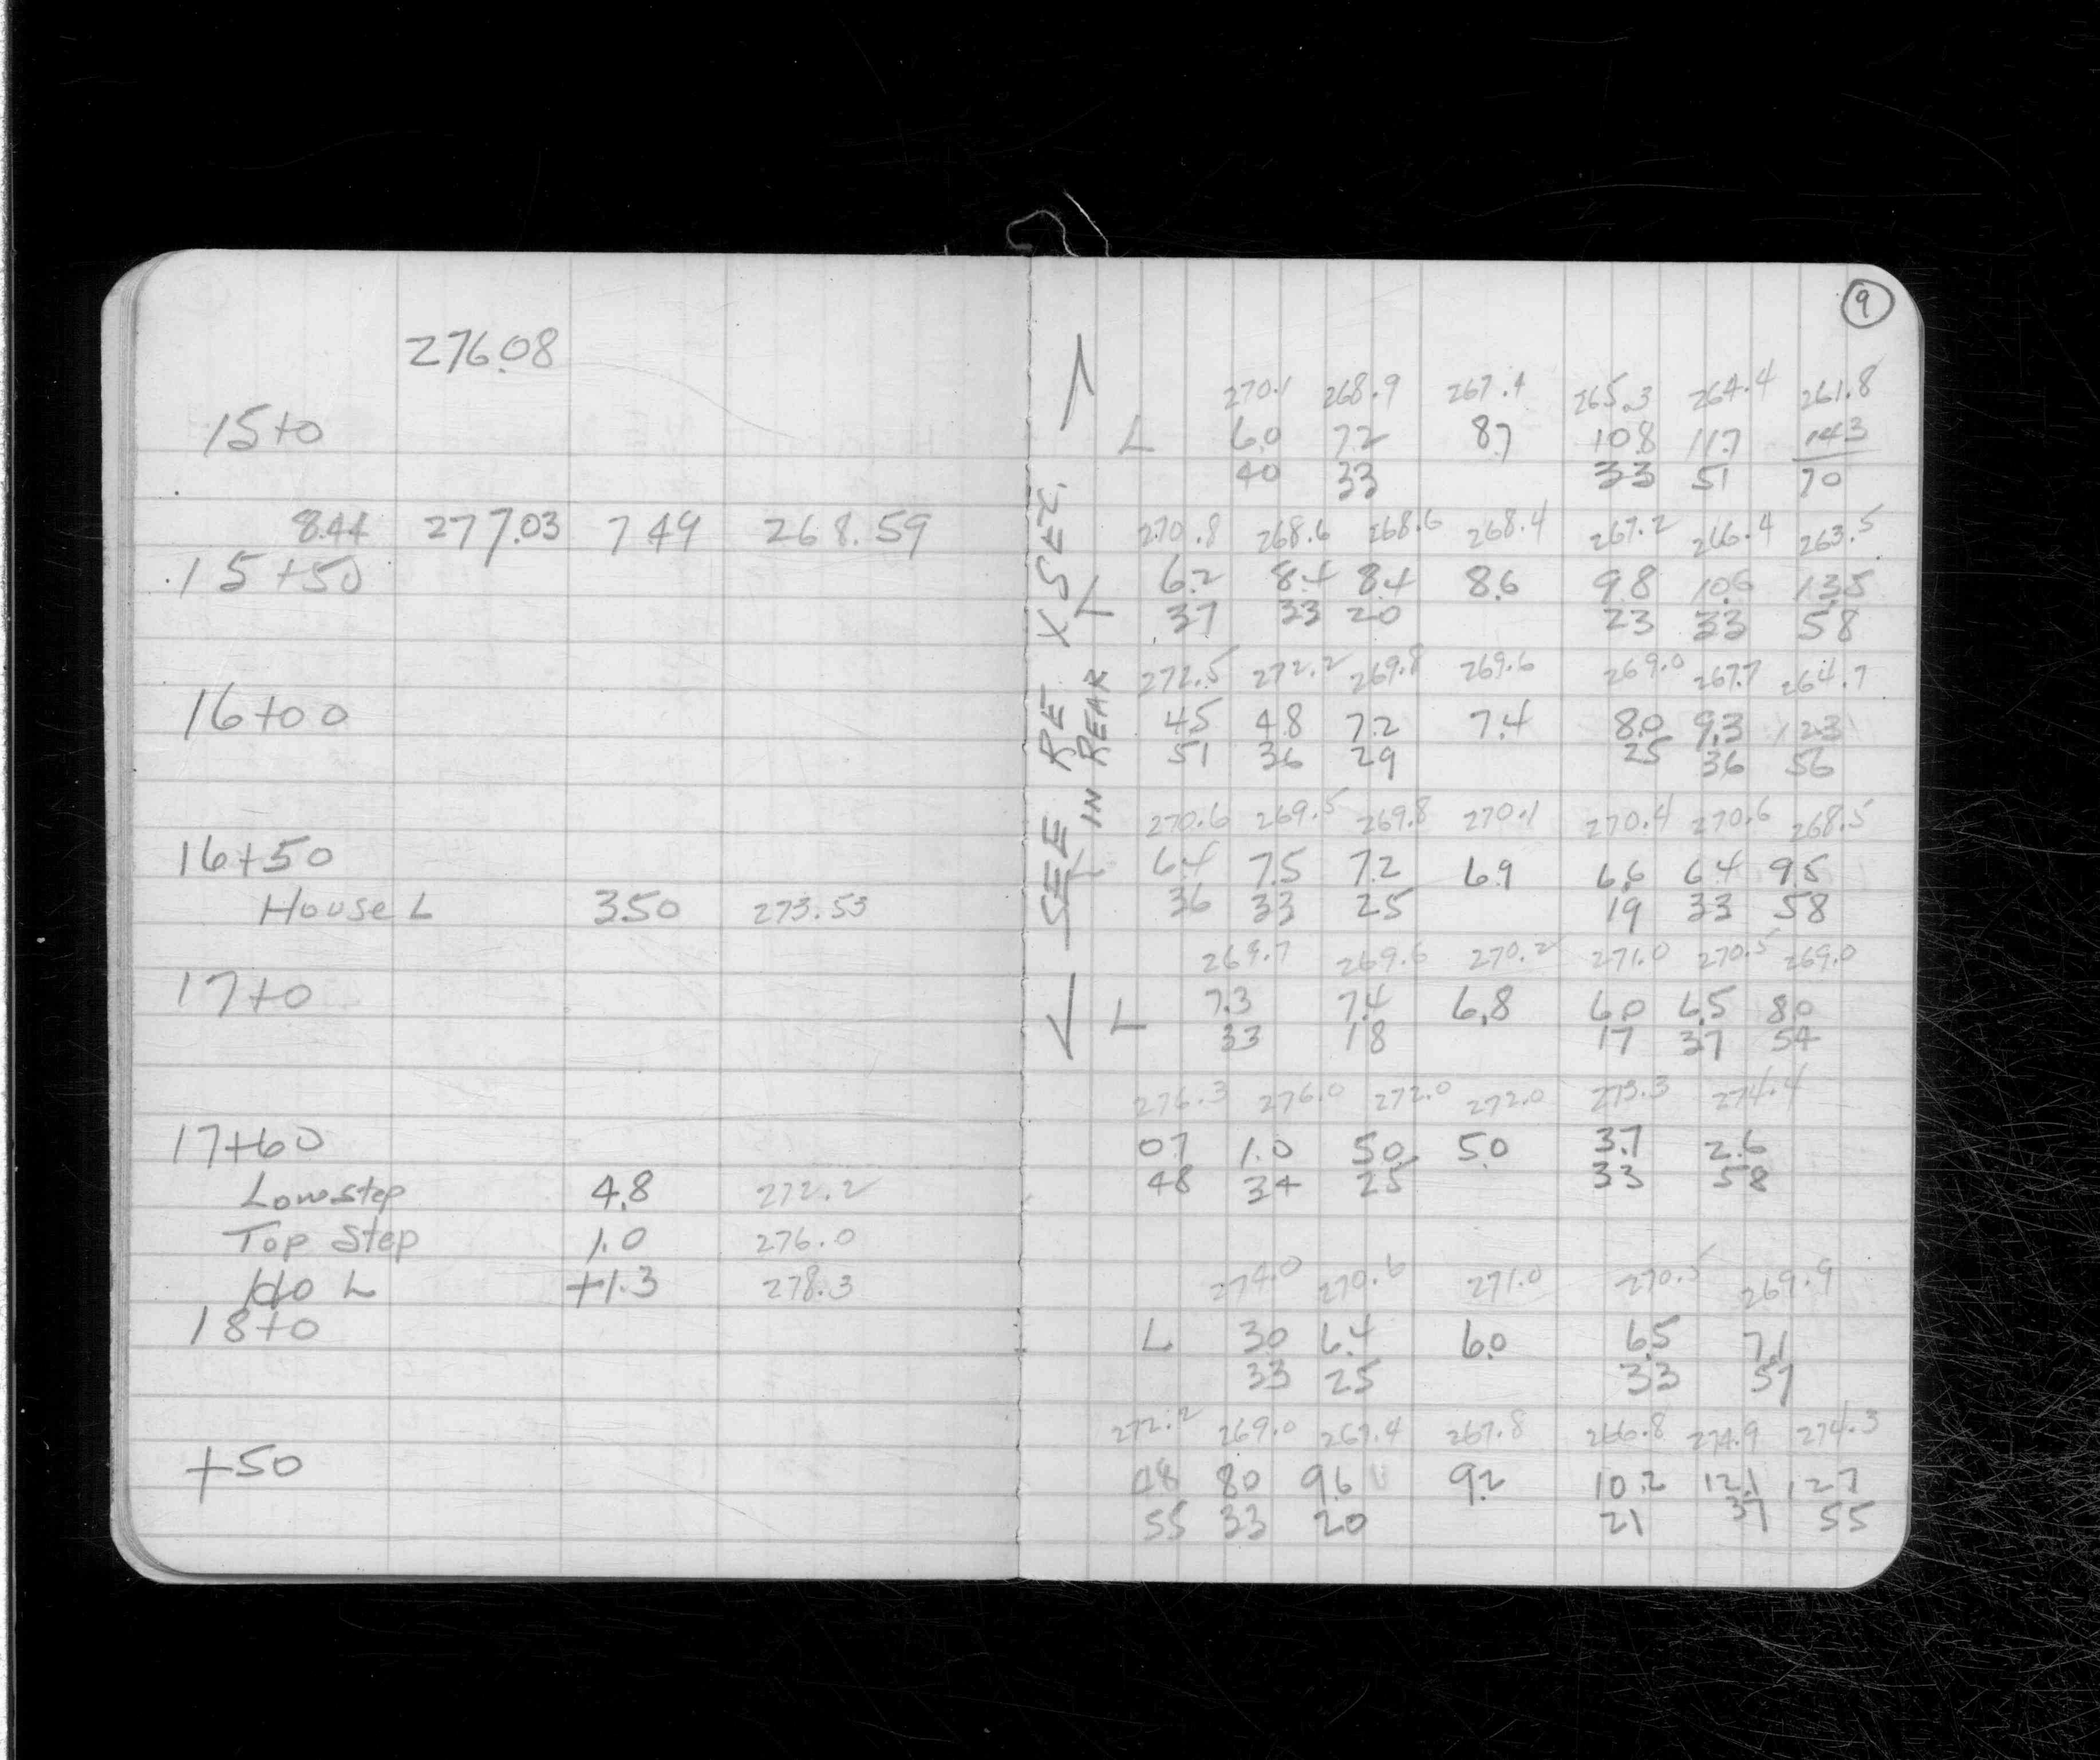 276.08
15+0
8.44 277.03 7.49 268.59
15+50
16+00
16+50
House L 3.50 273.53
17+0
17+60
Low step 4.8 272.2
Top Step 1.0 276.0
Ho L +1.3 278.3
18+0
+50
9
SEE RE X SEC.
IN REAR
270.1 268.9 267.4 265.3 264.4 261.8
L 6.0 7.2 8.7 10.8 11.7 14.3
40 33 33 51 70
270.8 268.6 268.6 268.4 267.2 266.4 263.5
L 6.2 8.4 8.4 8.6 9.8 10.6 13.5
37 33 20 23 33 58
272.5 272.2 269.8 269.6 269.0 267.7 264.7
4.5 4.8 7.2 7.4 8.0 9.3 12.3
51 36 29 25 36 56
270.6 269.5 269.8 270.1 270.4 270.6 268.5
L 6.4 7.5 7.2 6.9 6.6 6.4 9.5
36 33 25 19 33 58
269.7 269.6 270.2 271.0 270.5 269.0
L 7.3 7.4 6.8 6.0 6.5 8.0
33 18 17 37 54
276.3 276.0 272.0 272.0 273.3 274.4
0.7 1.0 5.0 5.0 3.7 2.6
48 34 25 33 58
274.0 270.6 271.0 270.5 269.9
L 3.0 6.4 6.0 6.5 7.1
33 25 33 57
272.2 269.0 267.4 267.8 266.8 274.9 274.3
4.8 8.0 9.6 9.2 10.2 12.1 12.7
55 33 20 21 37 55